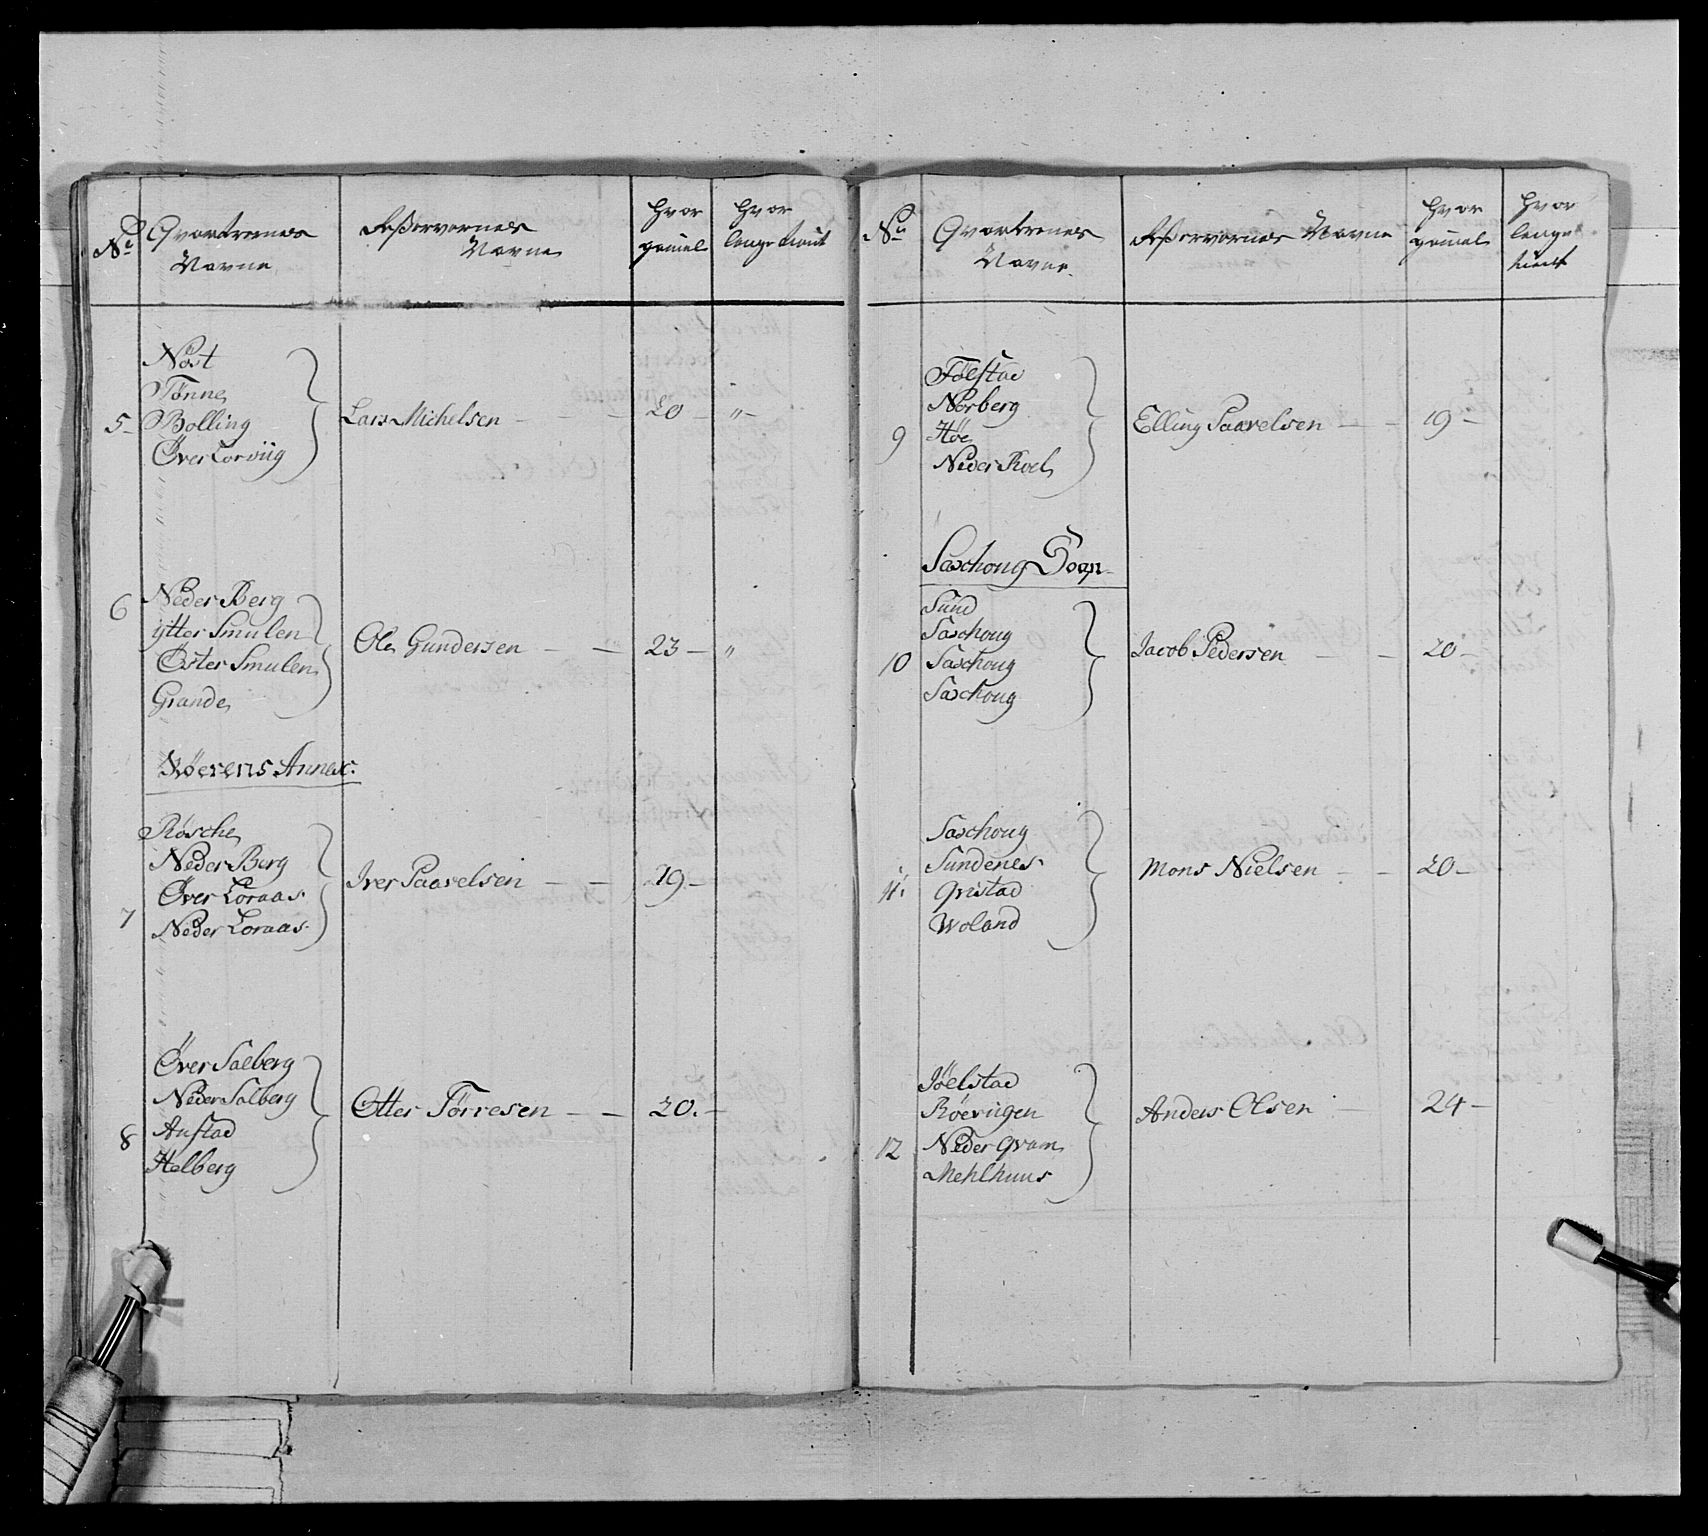 No Qvartrenes Navne
Reßervernes Navne
Hvor gamel
Hvor lenge tient
5 Nøst
Tønne
Bolling
Øver Lorviig
Lars Michelsen 20 "
6 Neder Berg
ytter Smulen
Øster Smulen
Grande
Ole Gundersen 23 "
Røerens Annex:
7 Røsche
Neder Berg
Øver Loraas
Neder Loraas
Iver Paavelsen 19
8 Øver Salberg
Neder Salberg
Austad
Helberg
Otter Tørresen 20.
No Qvartrenes Navne
Reßervernes Navne
Hvor gamel
Hvor lenge tient
9 Følstad
Norberg
Høe
Neder Roel
Elling Paavelsen 19
Saxhoug Sogn
10 Sund
Saxhoug
Saxhoug
Saxhoug
Jacob Pedersen 20
11 Saxhoug
Sundenes
Qvistad
Woland
Mons Nielsen 20
12 Jøelstad
Røevigen
Neder Qvam
Mehlhuus
Anders Olsen 24